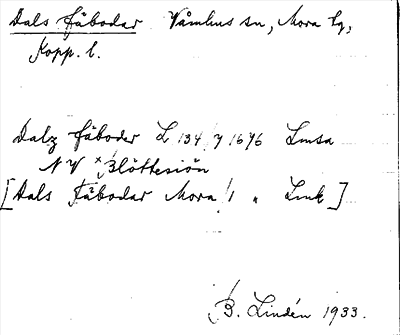 Dals Fäbodar Våmhus sn, Mora tg,
Kopp. l.
Dalz fäboder L 134 y 1696 Lmsa
NV × Blöttesiön
[Dals Fäbodar Mora /1 " Link]
B. Lindén 1933.